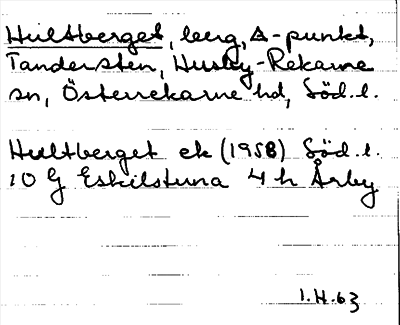 Hultberget, berg, Δ-punkt,
Tandersten, Husby-Rekarne
sn, Österrekarne hd, Söd.l.
Hultberget ek (1958) Söd.l.
10 G Eskilstuna 4 h Årby
1.H.63